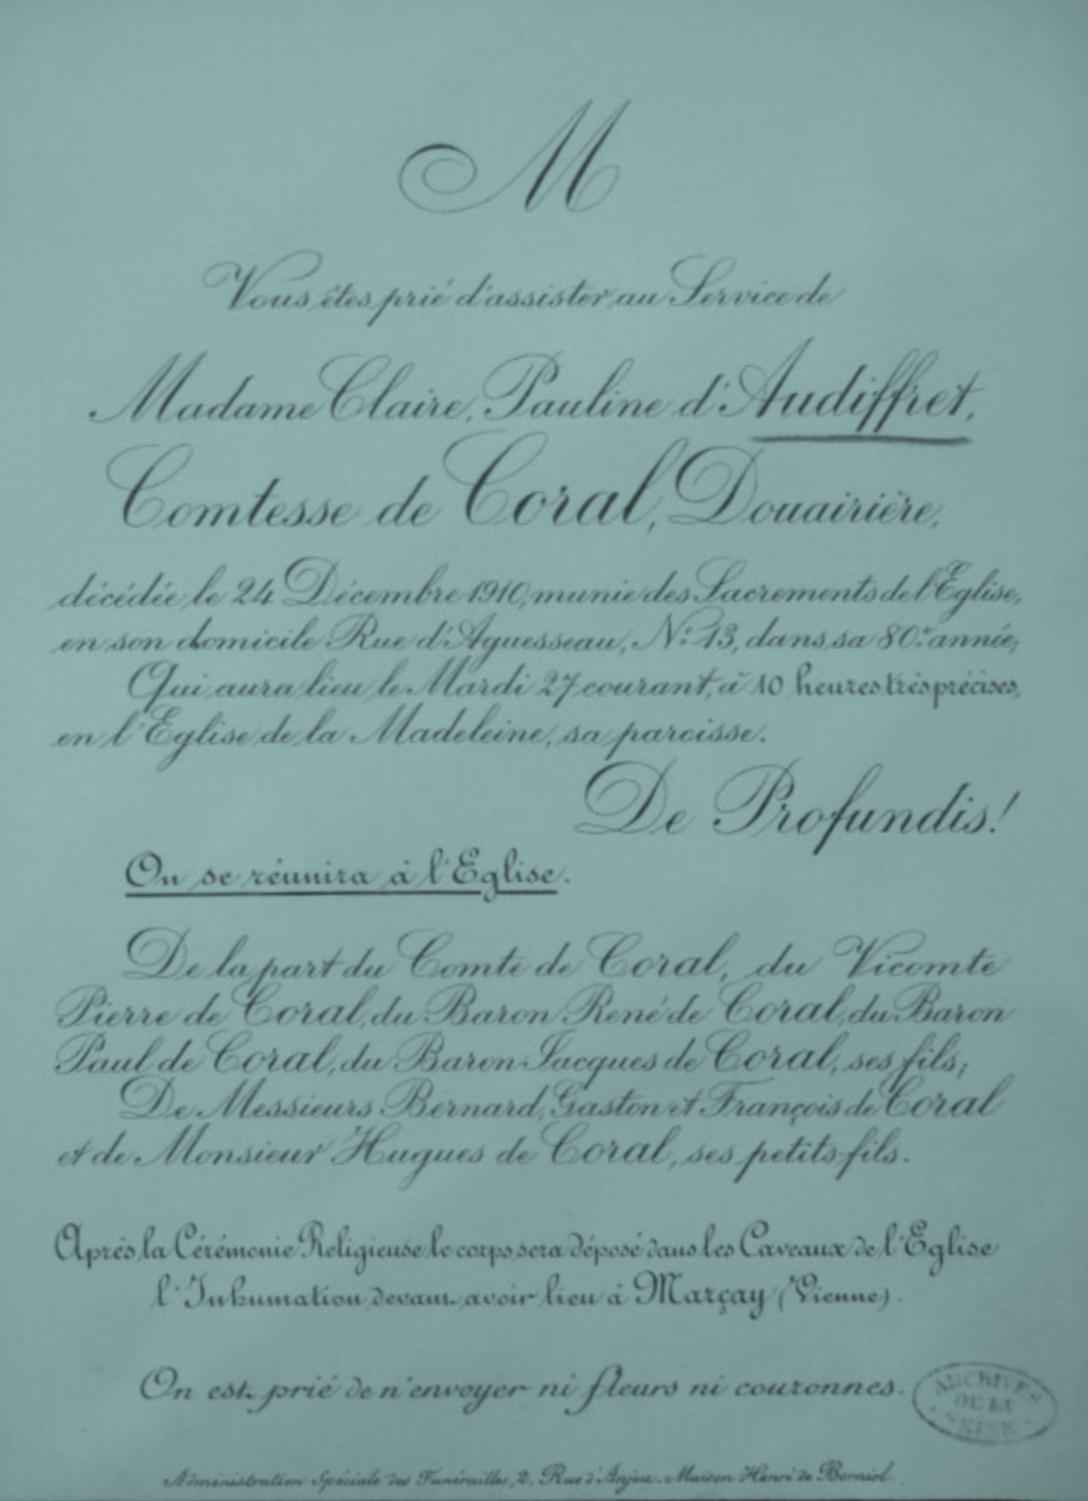 M
Vous êtes prié d'assister au Service de
Madame Claire, Pauline d'Audiffret,
Comtesse de Coral, Douairière,
décédée le 24 Décembre 1910, munie des Sacrements de l'Eglise,
en son domicile Rue d'Aguesseau, N.º 13, dans sa 80.e année;
Qui aura lieu le Mardi 27 courant, à 10 heures très précises,
en l'Eglise de la Madeleine, sa paroisse.
De Profundis!
On se réunira à l'Eglise.
De la part du Comte de Coral, du Vicomte
Pierre de Coral, du Baron René de Coral, du Baron
Paul de Coral, du Baron Jacques de Coral, ses fils;
De Messieurs Bernard, Gaston et François de Coral
et de Monsieur Hugues de Coral, ses petits-fils.
Après la Cérémonie Religieuse le corps sera déposé dans les Caveaux de l'Eglise
l'Inhumation devant avoir lieu à Marçay (Vienne).
On est prié de n'envoyer ni fleurs ni couronnes.
ARCHIVES
DE LA
SEINE
Administration Spéciale des Funérailles, 2, Rue d'Anjou. Maison Henri de Borniol